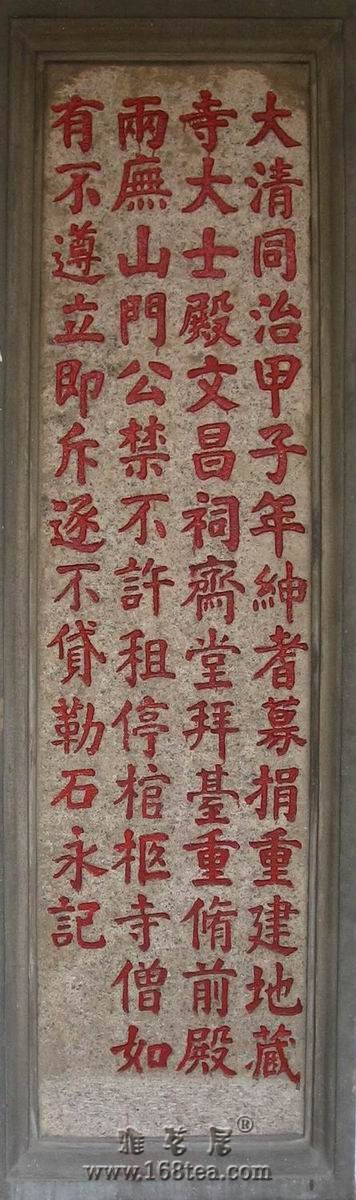 大清同治甲子年紳耆募捐重建地藏
寺大士殿文昌祠齋堂拜臺重脩前殿
兩廡山門公禁不許租停棺柩寺僧如
有不遵立即斥逐不貸勒石永記
雅茗居®
www.168tea.com